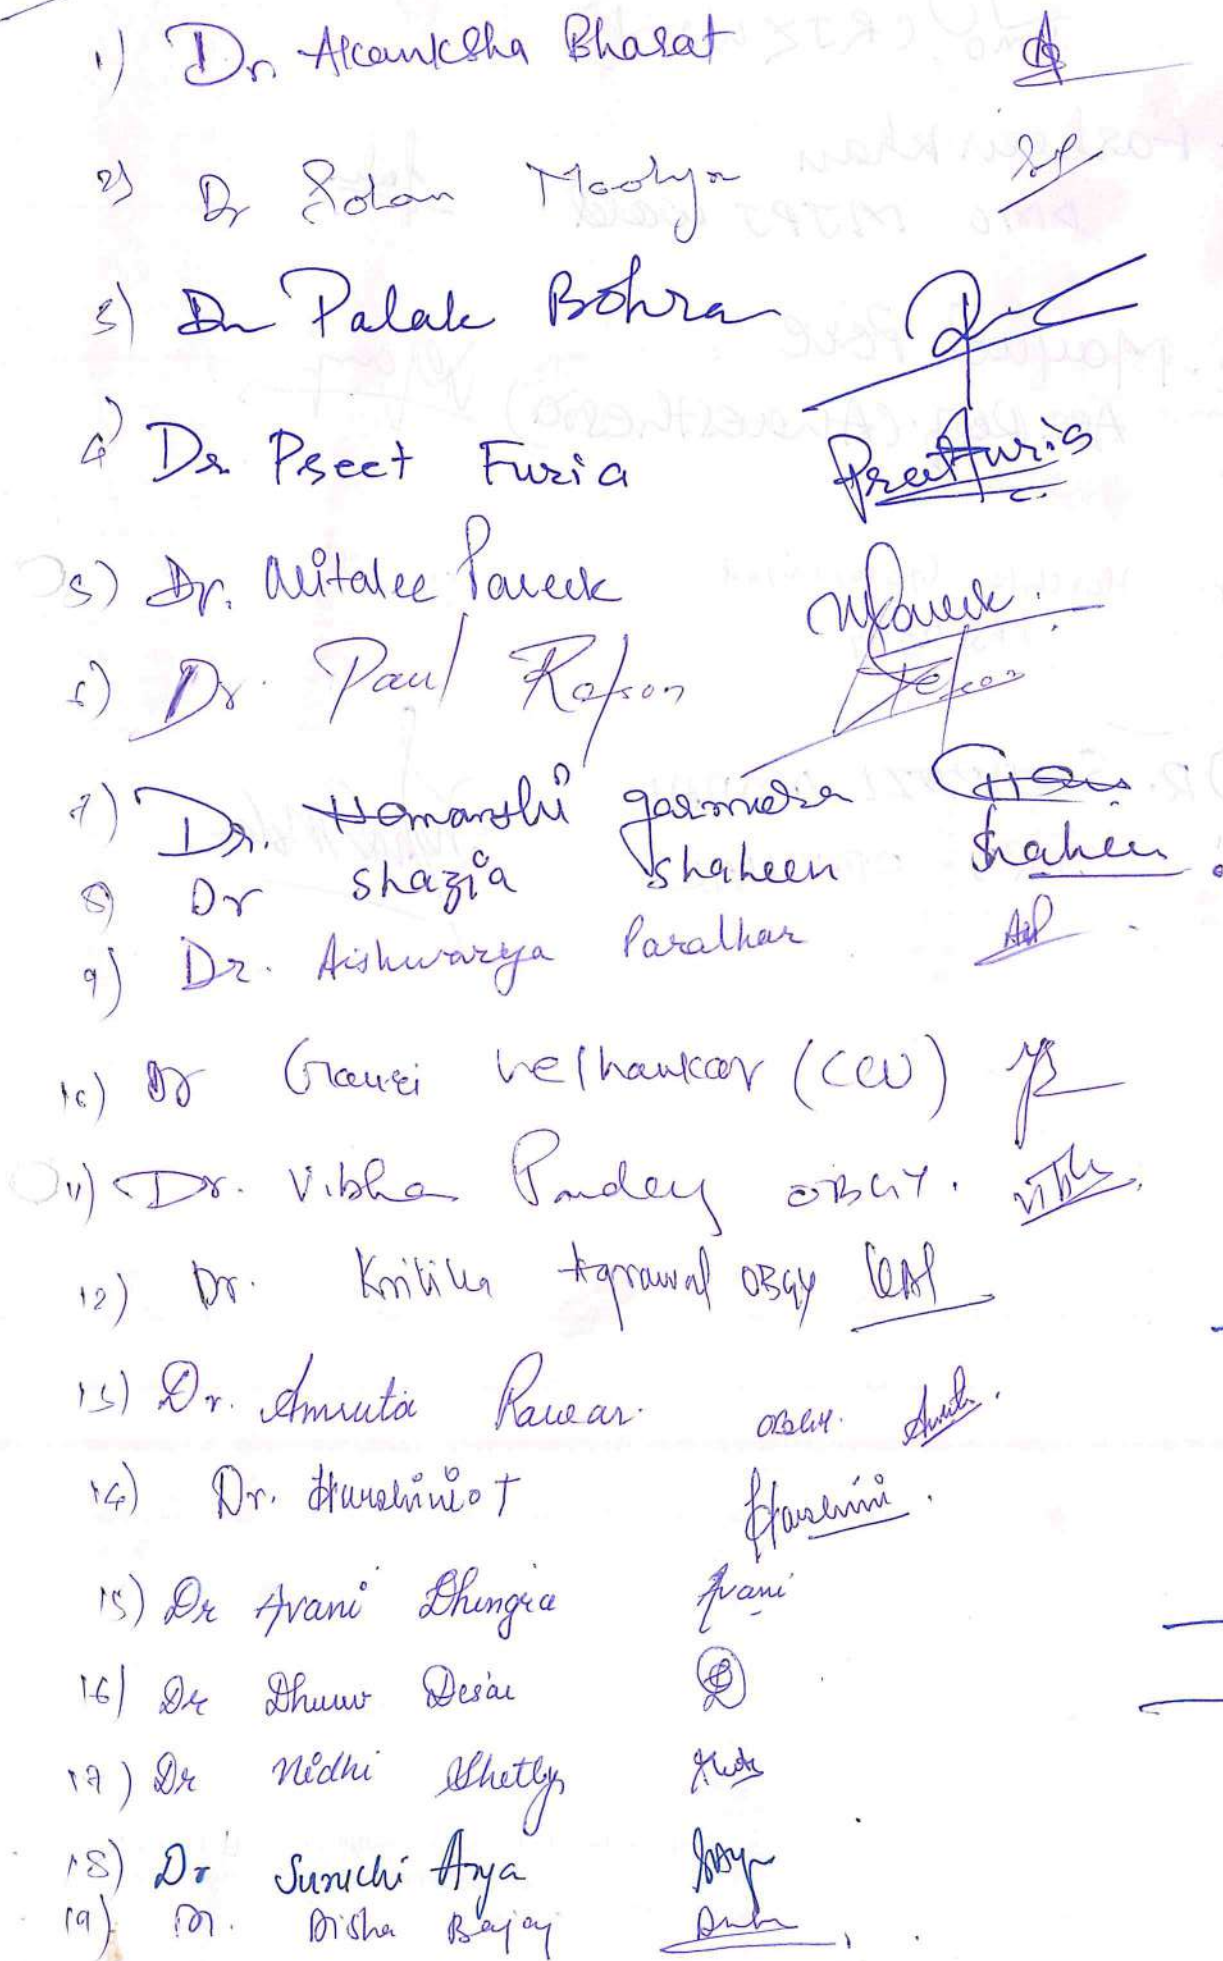 1) Dr. Akanksha Bharat
2) Dr Sohan Moolya
3) Dr Palak Bohra
4) Dr. Preet Furia PreetFuria
5) Dr. Mitalee Pareek MPareek.
6) Dr. Paul Rofson
7) Dr. Hemanshi
8) Dr Shazia Shaheen Shaheen.
9) Dr. Aishwarya Paralkar AP
10) Dr Gauri Velhankar (CCU)
11) Dr. Vibha Pandey OBGY.
12) Dr. Kritika Agrawal OBGY KAP
13) Dr. Amruta Pawar. OBGY.
14) Dr. Harshini.T Harshini.
15) Dr Avani Dhingra Avani
16) Dr Dhruv Desai D
17) Dr Nidhi Shetty
18) Dr Suruchi Arya
19) Dr. Disha Bajaj